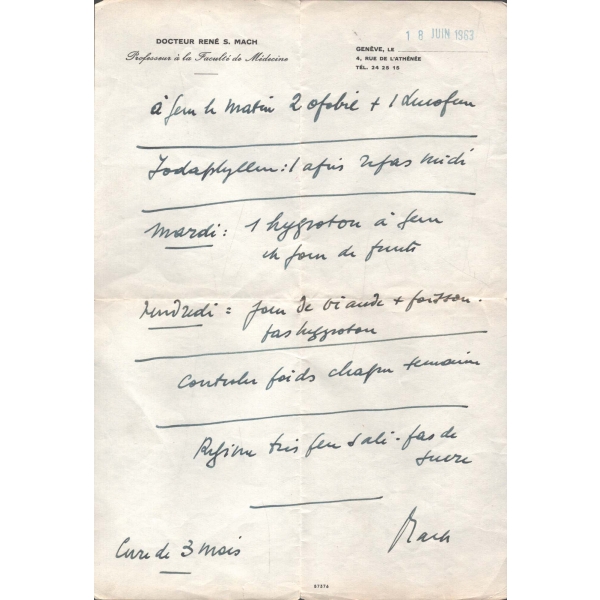 DOCTEUR RENÉ S. MACH
Professeur à la Faculté de Médecine
GENÈVE, LE 18 JUIN 1963
4, RUE DE L'ATHÉNÉE
TÉL. 24 28 16
à jeun le matin 2 + 1
Iodaphyllin: 1 après repas midi
Mardi: 1 hygroton à jeun
et jour de fruits
Vendredi = jour de viande + poisson.
pas hygroton
Controler poids chaque semaine
Régime très peu salé - pas de
sucre
Cure de 3 mois
Mach
87374